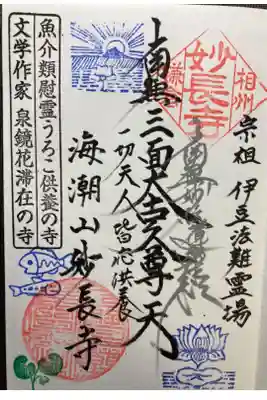 宗祖 伊豆法難霊場
相州
妙長寺
鎌倉
南無三面大黒尊天
一切天人 皆応供養
海潮山妙長寺
魚介類慰霊うろこ供養の寺
文学作家 泉鏡花滞在の寺